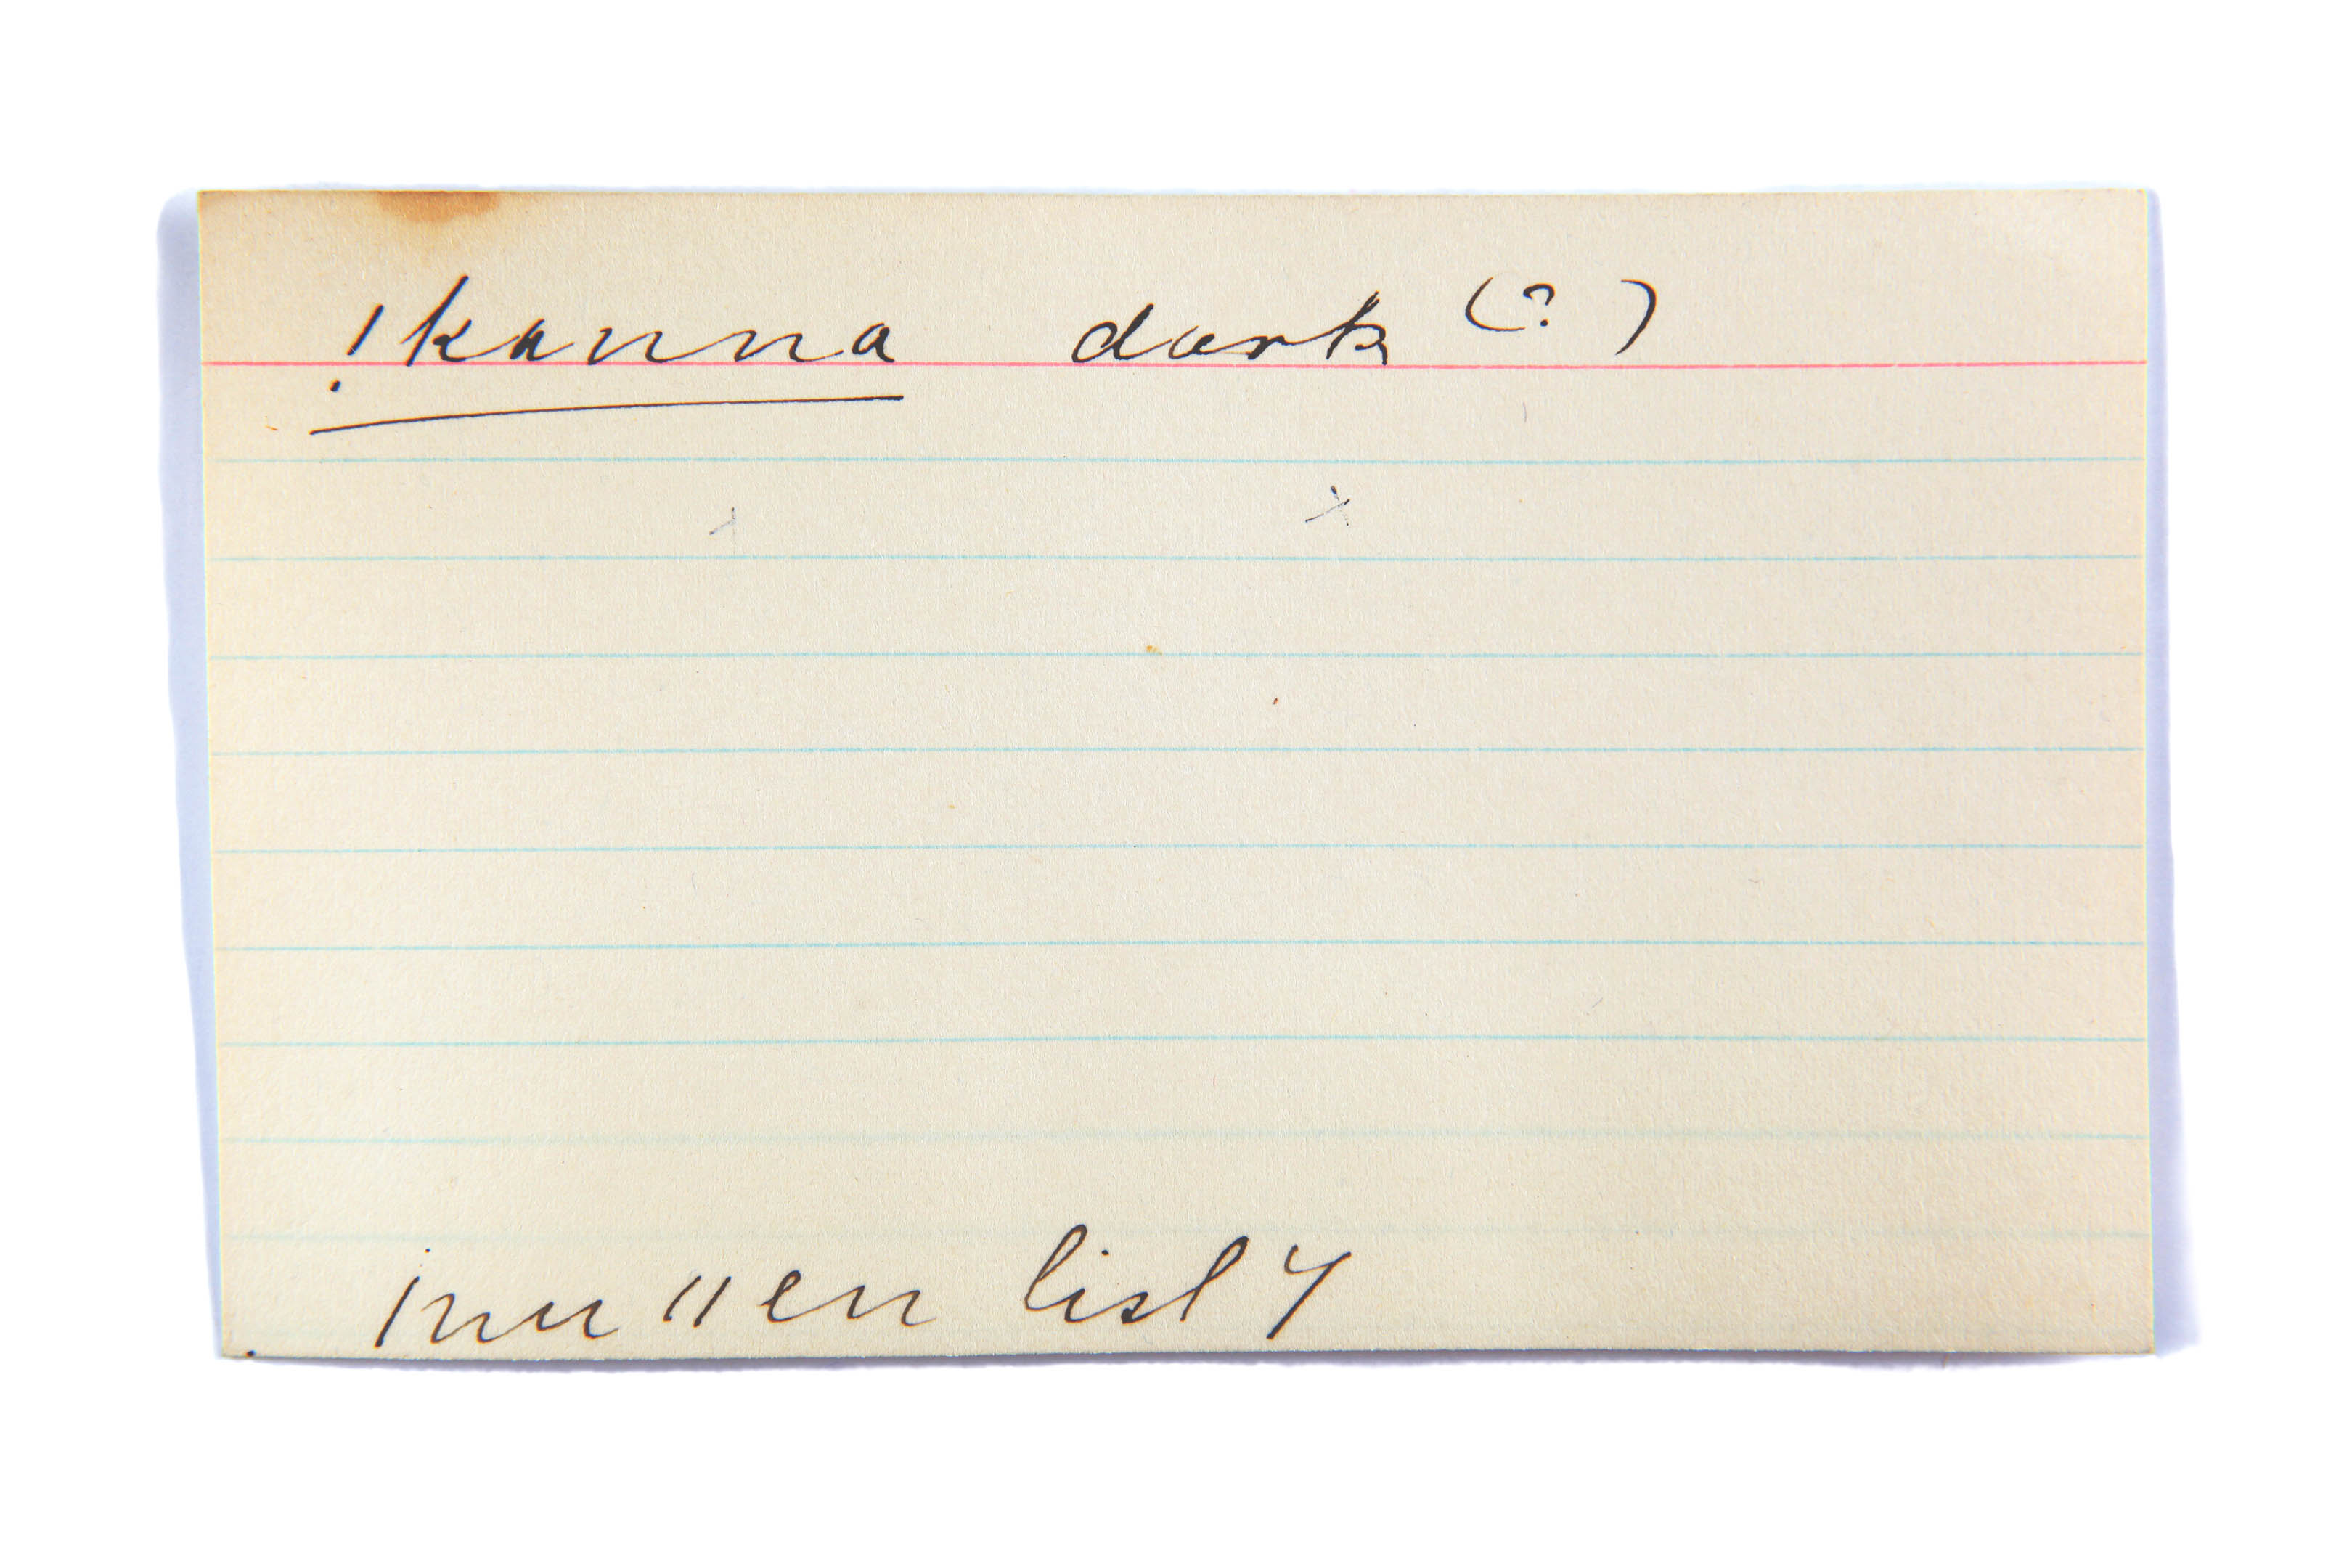 !kanna dark (?)
!nu //en list 4